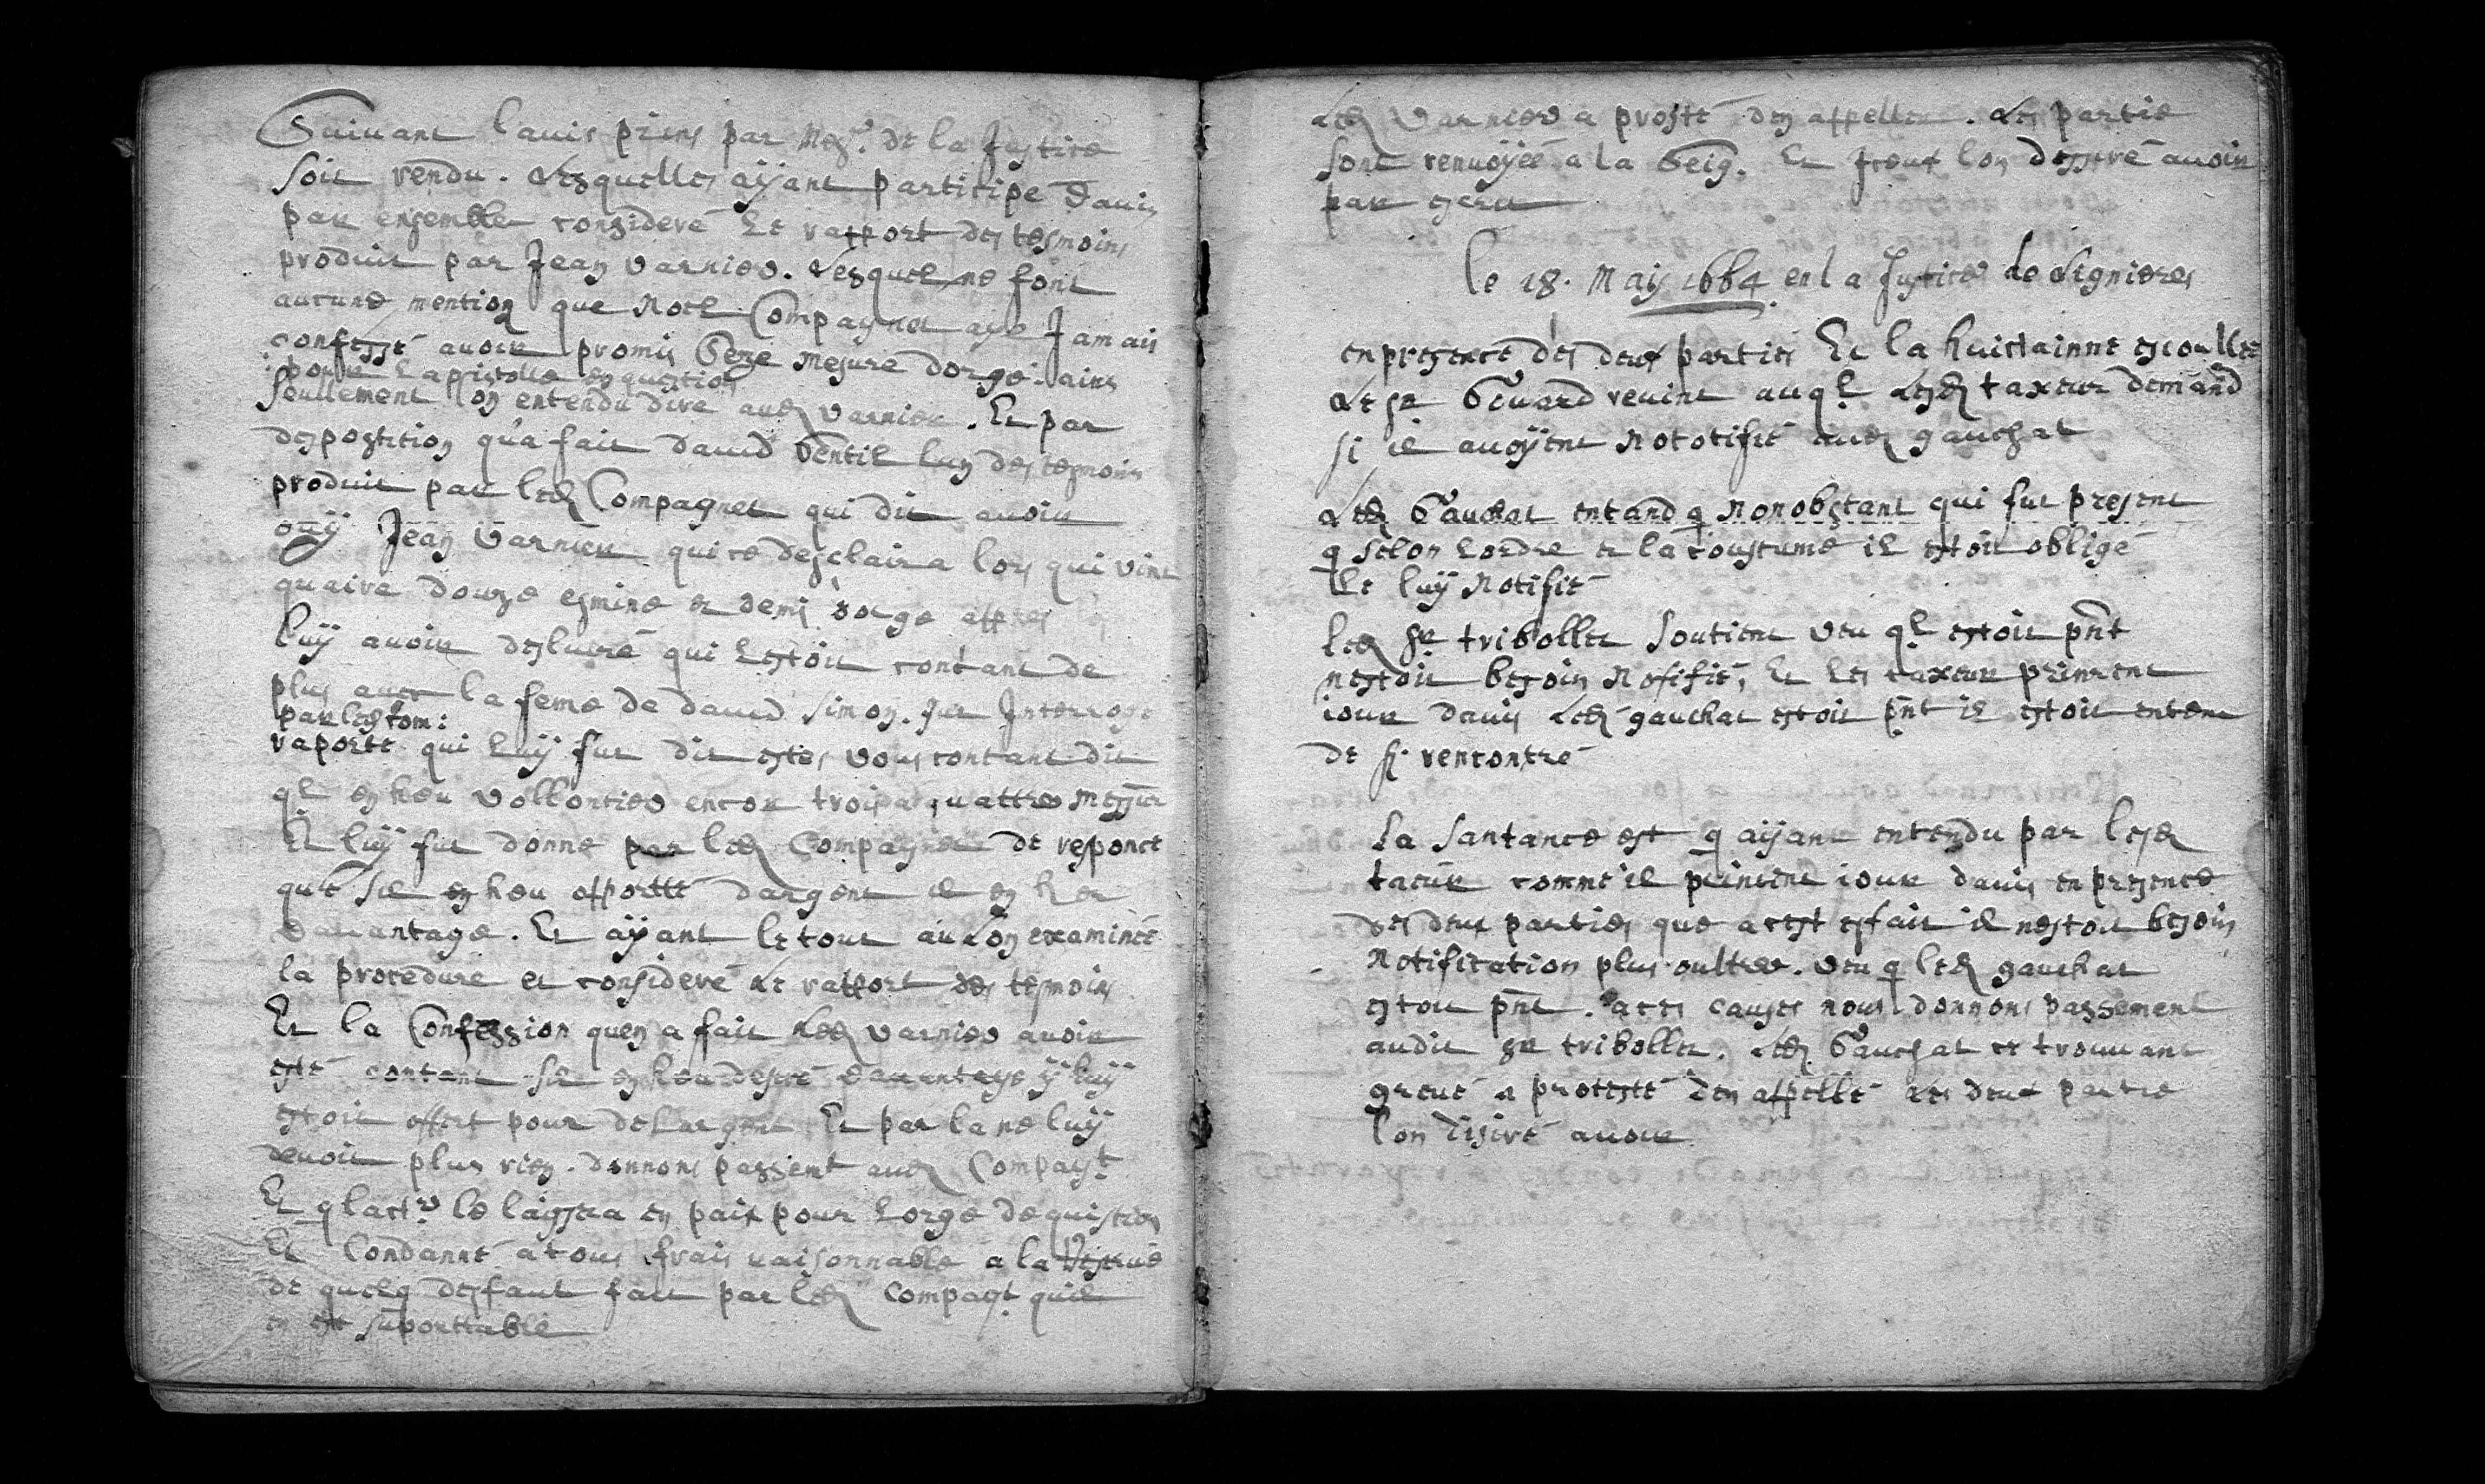 Suiuant lauis prins par Mesr. de la Justice
soit rendu. Lesquelles aÿant participe dauis
par ensemble consideré Le rapport des tesmoins
produit par Jean Varnier. Lesquel ne font
aucune mention que Noel Compagnet aye Jamais
confessé auoir promis Seze mesure dorge. ains
pour La pistolle en question
seullement lon entendu dire aud. Varnier. Et par
despostition qu'a fait dauid Gentil luy des tesmoins
produit par led. Compagnet qui dit auoir
ouÿ Jean Varnier qui ce desclaira lors qui vint
quaire douze esmine et demi dorge appres
luÿ auoir desliuré qui Lestoit contant de
plus auec la feme de dauid Simon. sur Interroge
par les com:
raporte qui Luÿ fut dit estes vous contant dit
ql en heu vollontier encor trois a quattre messure
Et luÿ fut donne par led. Compagnet de reponce
que sil en heu apportté dargent il en heu
dauantage. Et aÿant le tout au Lon examineé
la procedure et consideré Le rapport des tesmoins
Et la Confession quen a fait Led. Varnier auoir
esté contant sil en heu desiré dauentage ÿ luÿ
estoit offert pour de Largent Et par la ne luÿ
deuoit plus rien. donnons passemt aud. Compagt.
Et q lactr. le laissera en paix pour Lorge de quistion
Et Condanné a tous frais raisonnable a la Reserue
de quelq desfaut fait par led. Compagt. quil
en est suporttable
Led. Varnier a prosté den appeller. Les partie
sont renuoÿeé a la Seig. Et ceux lon dessiré auoir
par escrit
Le 18. Maÿ 1664 en la Justice de Lignieres
en presence des deux parties Et la huictainne escoullee
Le Sr Gouard reuint auql. Lesd. taxeur demand
si il auoÿent Nototifié aud. gauchat
Led. Gauchat entand q Nonobstant qui fut present
q selon Lordre et la coustume il estoit obligé
Le luÿ Notifié
Led. Sr tribollet soutient veu ql. estoit pñt
nestoit besoin Nofifié, Et Les taxeur prinrent
iour dauis Led. gauchat estoit pñt il estoit entene
de s'i rencontré
La Santance est q aÿant entendu par lesd.
taeur comme il prinrent iour dauis en presence
des deux parties que a cest esfait il nestoit besoin
Notification plus oultre. veu q led. gauchat
estoit pñt. a ces causes nous donnons passement
audit Sr tribollet. Led. Gauchat ce trouuant
greué a protesté den appellé Les deux partie
lon disiré auoir